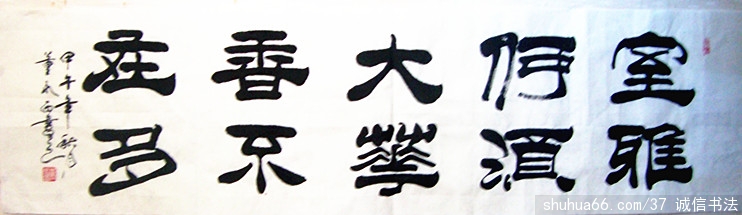 室雅
何須
大華
香不
在多
甲午年秋月
董
shuhua66.com/37 诚信书法